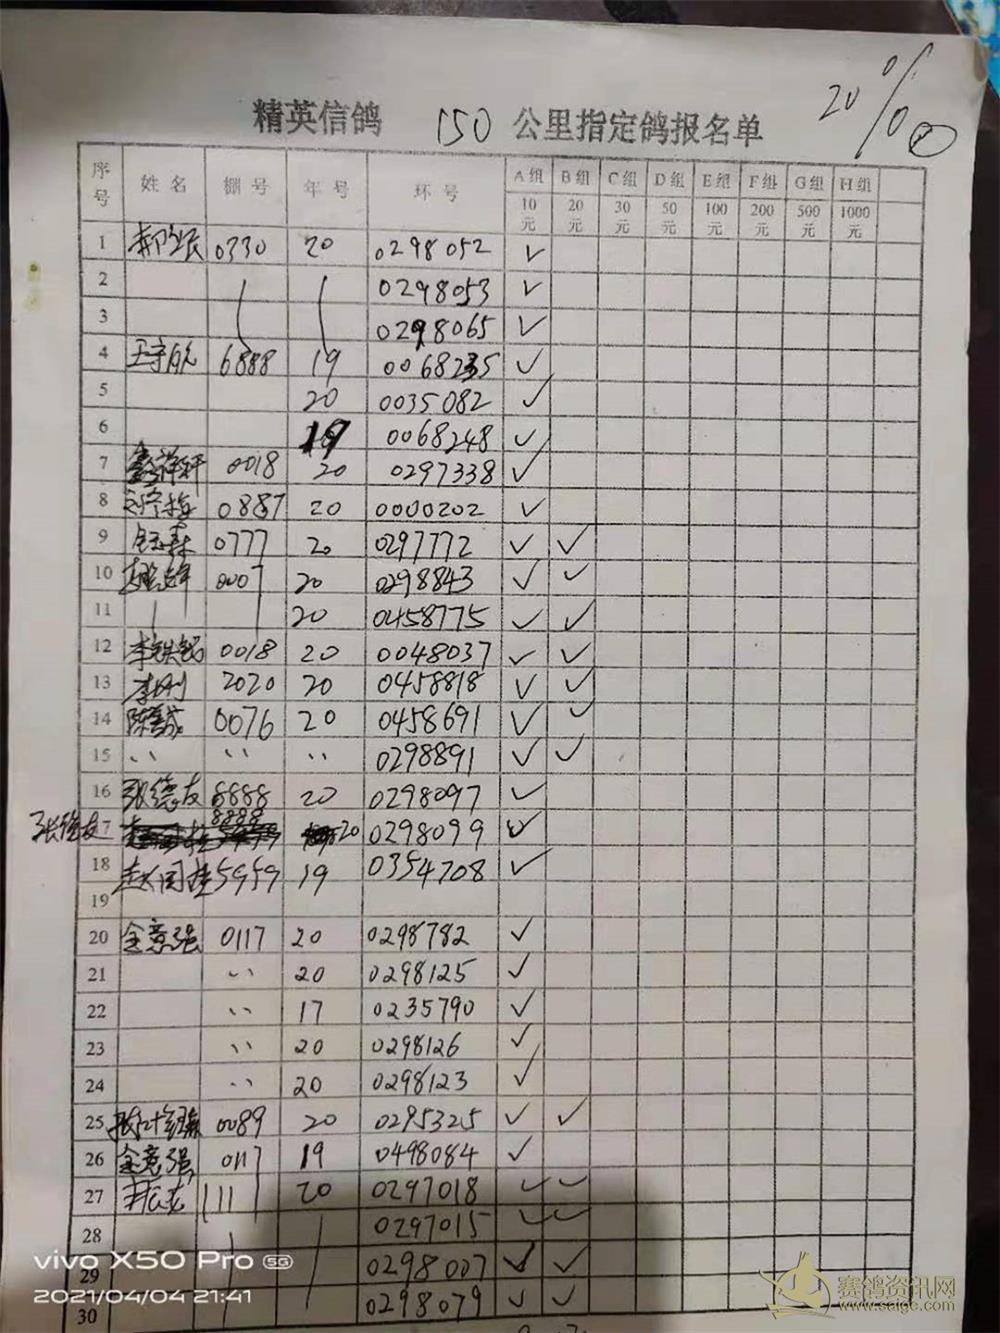 20% ②
精英信鸽 150 公里指定鸽报名单
序号 姓名 棚号 年号 环号 A组 B组 C组 D组 E组 F组 G组 H组
10元 20元 30元 50元 100元 200元 500元 1000元
1 0330 20 0298052 ✓
2 0298053 ✓
3 0298065 ✓
4 6888 19 0068235 ✓
5 20 0035082 ✓
6 19 0068248 ✓
7 0018 20 0297338 ✓
8 0887 20 0000202 ✓
9 0777 20 0297772 ✓ ✓
10 0007 20 0298843 ✓ ✓
11 20 0458775 ✓ ✓
12 0018 20 0048037 ✓ ✓
13 李刚 2020 20 0458818 ✓ ✓
14 0076 20 0458691 ✓ ✓
15 〃 〃 〃 0298891 ✓ ✓
16 张德友 8888 20 0298097 ✓
张德友 17 8888 20 0298099 ✓
18 赵国柱 5959 19 0354708 ✓
19
20 金意强 0117 20 0298782 ✓
21 〃 20 0298125 ✓
22 〃 17 0235790 ✓
23 〃 20 0298126 ✓
24 〃 20 0298123 ✓
25 0089 20 0295325 ✓ ✓
26 金意强 0117 19 0498084 ✓
27 1111 20 0297018 ✓ ✓
28 0297015 ✓ ✓
29 0298007 ✓ ✓
30 0298079 ✓ ✓
vivo X50 Pro 5G
2021/04/04 21:41
赛鸽资讯网
www.saige.com